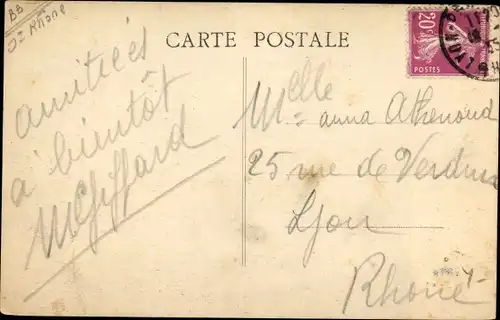 BB
Oz Rhône
CARTE POSTALE
20c
POSTES
LYON
amitiées
à bientôt
Mlle
anna Athenoud
25 rue de Verdun
Lyon
Rhône